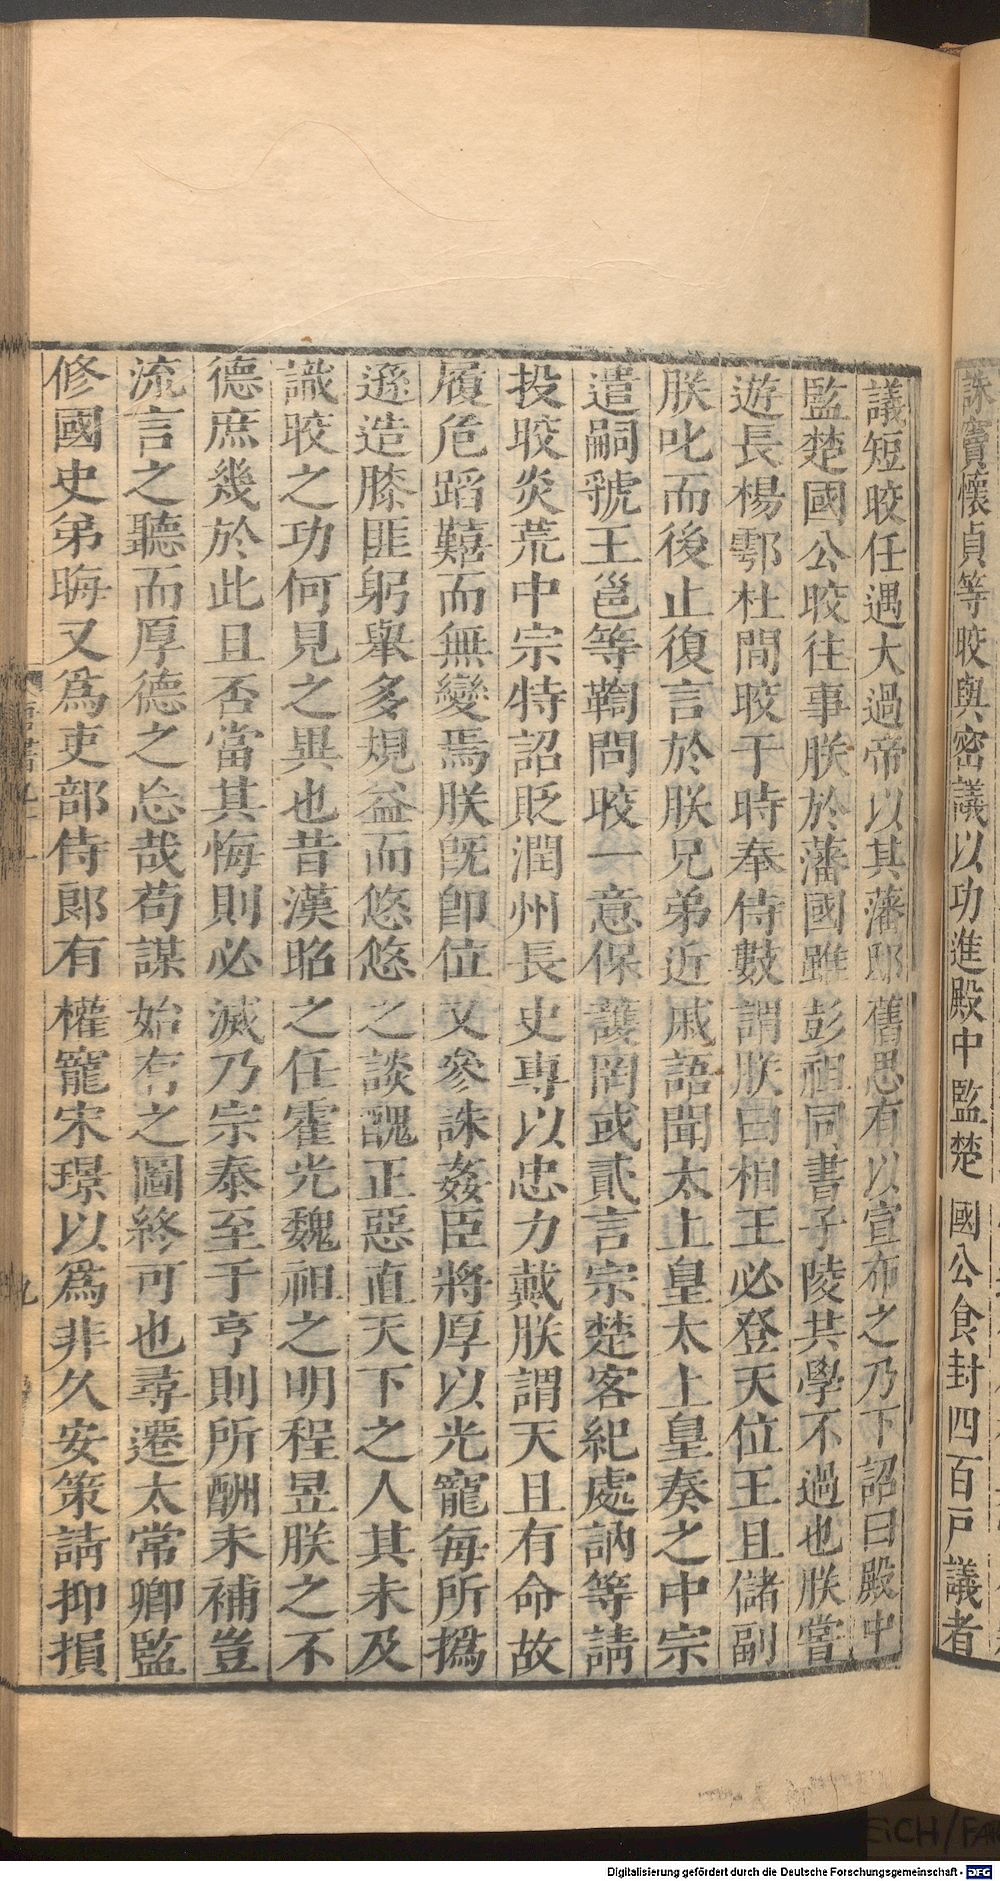 誅竇懷貞等晈與密議以功進殿中監楚國公食封四百戸議者
議短晈任遇大過帝以其藩邸舊思有以宣布之乃下詔曰殿中
監楚國公晈往事朕於藩國雖彭祖同書子陵共學不過也朕嘗
遊長楊鄠杜間晈于時奉侍數謂朕曰相王必登天位王且儲副
朕叱而後止復言於朕兄弟近戚語聞太上皇太上皇奏之中宗
遣嗣虢王邕等鞫問晈一意保護罔或貳言宗楚客紀處訥等請
投晈炎荒中宗特詔貶潤州長史專以忠力戴朕謂天且有命故
履危蹈囏而無變焉朕旣卽位又參誅姦臣將厚以光寵每所撝
遜造膝匪躬槼多規益而悠悠之談醜正惡直天下之人其未及
識晈之功何見之異也昔漢昭之任霍光魏祖之明程昱朕之不
德庶幾於此且否當其悔則必滅乃宗泰至于亨則所酬未補豈
流言之聽而厚德之忘哉苟謀始有之圖終可也尋遷太常卿監
修國史弟晦又爲吏部侍郞有權寵宋璟以爲非久安策請抑損
九
Digitalisierung gefördert durch die Deutsche Forschungsgemeinschaft - DFG